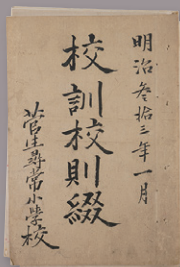 明治叁拾三年一月
校訓校則綴
菅生尋常小学校